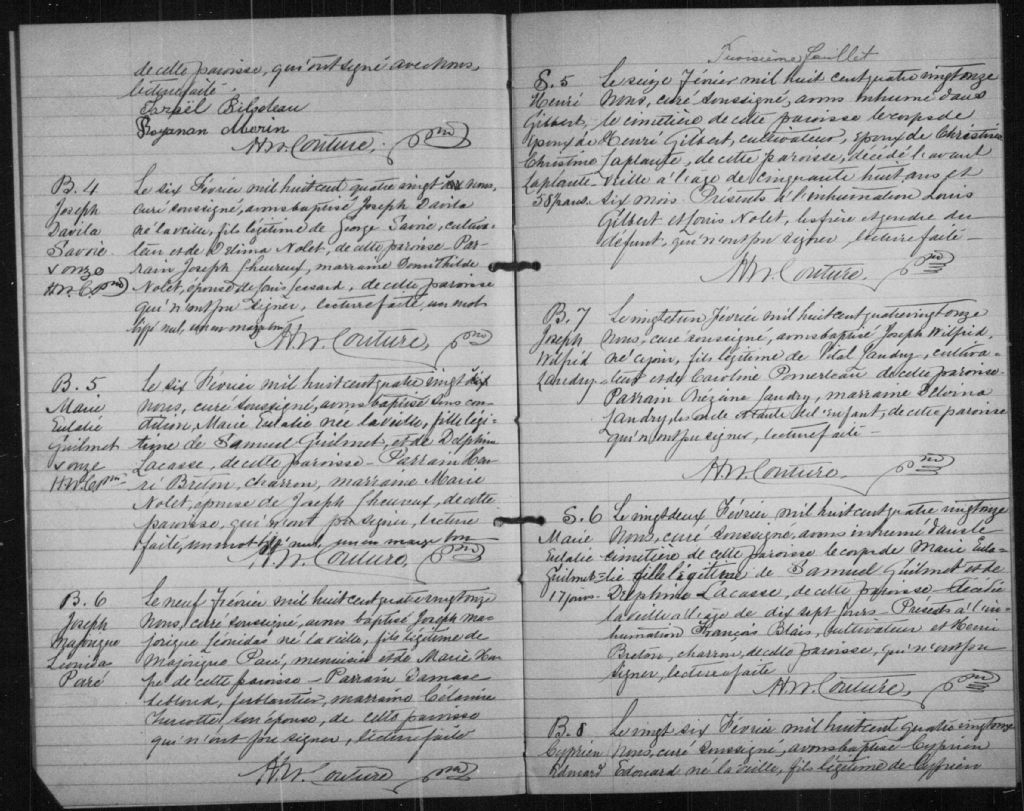 de cette paroisse, qui ont signé avec nous,
lecture faite.
Israël Bilodeau
Morin
H.W. Couture, ptre
B. 4
Joseph
Davila
Savoie
x onze
H.W. C ptre
Le six Février mil huit cent quatre vingt dix nous,
curé soussigné, avons baptisé Joseph Davila
né la veille, fils légitime de George Savoie, cultiva-
teur et de Délima Nolet, de cette paroisse. Par-
rain Joseph Lheureux, marraine Domithilde
Nolet, épouse de Louis Lessard, de cette paroisse
qui n'ont pu signer, lecture faite, un mot
biffé nul, un en marge bon
H.W. Couture, ptre
B. 5
Marie
Eulalie
Guilmet
x onze
H.W. C ptre
Le six Février mil huit cent quatre vingt dix
Nous, curé soussigné, avons baptisé sous con-
dition, Marie Eulalie née la veille, fille légi-
time de Samuel Guilmet, et de Delphine
Lacasse, de cette paroisse - Parrain Hen-
ri Breton, charron, marraine Marie
Nolet, épouse de Joseph Lheureux, de cette
paroisse, qui n'ont pu signer, lecture
faite, un mot biffé nul, un en marge bon -
H.W. Couture, ptre
B. 6
Joseph
Majorique
Léonidas
Paré
Le neuf Février mil huit cent quatre vingt onze
Nous, curé soussigné, avons baptisé Joseph Ma-
jorique Léonidas né la veille, fils légitime de
Majorique Paré, menuisier et de Marie
de cette paroisse - Parrain Damase
Leblond, ferblantier, marraine Célanire
Turcotte son épouse, de cette paroisse
qui n'ont pu signer, lecture faite
H.W. Couture ptre
Troisième Feuillet
S. 5
Henri
Gilbert,
Epoux de
Christine
Laplante
58½ ans.
Le seize Février mil huit cent quatre vingt onze
Nous, curé soussigné, avons inhumé dans
le cimetière de cette paroisse le corps de
Henri Gilbert, cultivateur, époux de Christine
Laplante, de cette paroisse, décédé l'avant
veille à l'âge de cinquante huit ans et
six mois. Présents à l'inhumation Louis
Gilbert et Louis Nolet, les frère et gendre du
défunt, qui n'ont pu signer lecture faite -
H.W. Couture. ptre
B. 7
Joseph
Wilfrid
Landry
Le vingt et un Février mil huit cent quatre vingt onze
Nous, curé soussigné, avons baptisé Joseph Wilfrid,
né ce jour, fils légitime de Vital Landry, cultiva-
teur et de Caroline Pomerleau de cette paroisse.
Parrain Nézime Landry, marraine Delvina
Landry, les oncle et tante de l'enfant, de cette paroisse
qui n'ont pu signer, lecture faite -
H.W. Couture. ptre
S. 6
Marie
Eulalie
Guilmet
17 jours
Le vingt deux Février mil huit cent quatre vingt onze
Nous, curé soussigné, avons inhumé dans le
cimetière de cette paroisse le corps de Marie Eula-
lie fille légitime de Samuel Guilmet et de
Delphine Lacasse, de cette paroisse - décédée
la veille à l'âge de dix sept jours - Présents à l'in-
humation François Blais, cultivateur et Henri
Breton, charron, de cette paroisse, qui n'ont pu
signer, lecture faite
H.W. Couture, ptre
B. 8
Cyprien
Edouard
Le vingt six Février mil huit cent quatre vingt onze
Nous, curé soussigné, avons baptisé Cyprien
Edouard né la veille, fils légitime de Cyprien